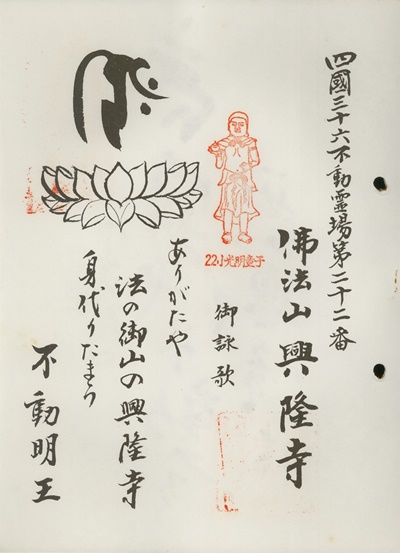 四國三十六不動霊場第二十二番
佛法山興隆寺
22小光明童子
御詠歌
ありがたや
法の御山の興隆寺
身代りたまう
不動明王